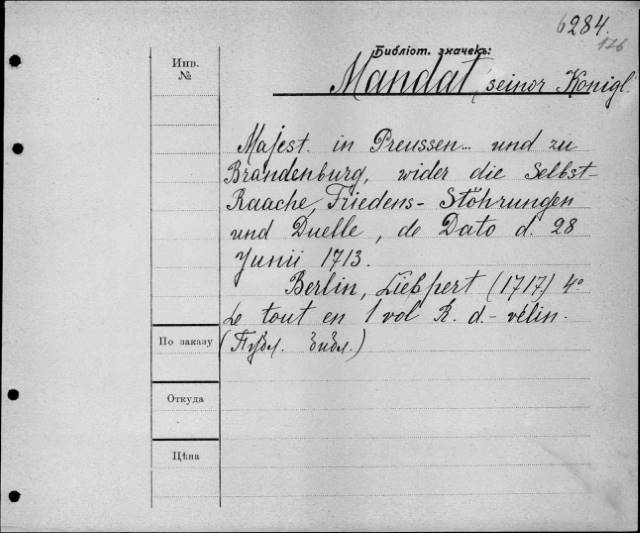 6284.
126
Библіот. значекъ:
Инв.
№
Mandat, seinor Königl.
Majest. in Preussen... und zu
Brandenburg, wider die Selbst-
Raache, Friedens- Stöhrungen
und Duelle, de Dato d. 28
Junii 1713.
Berlin, Liefpert (1717.) 4°
Le tout en 1 vol R. d.- vélin.
По заказу
(Публ. библ.)
Откуда
Цѣна